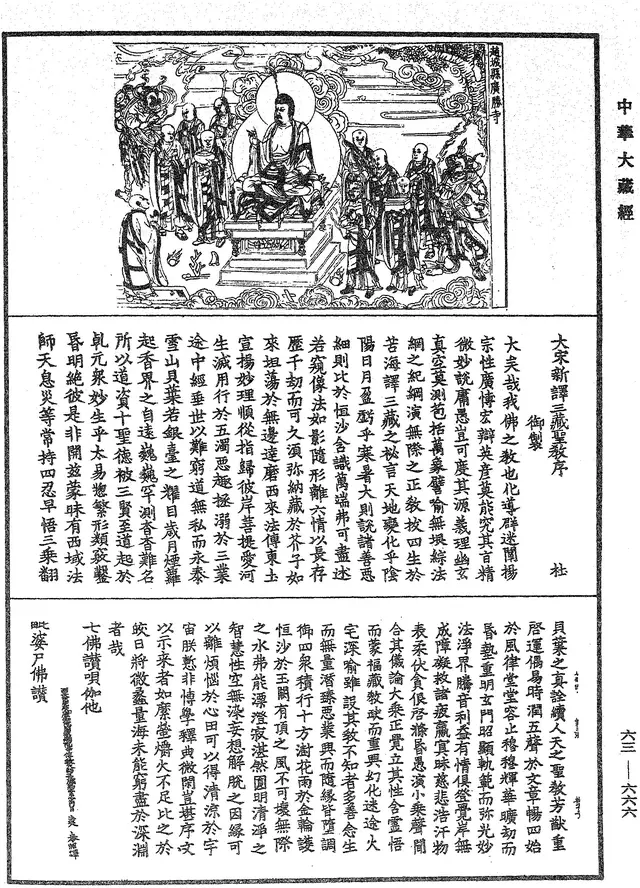 中華大藏經
六三—六六六
趙城縣廣勝寺
大宋新譯三藏聖教序 杜
御製
大矣哉我佛之教也化導群迷闡揚
宗性廣博宏辯英彥莫能究其旨精
微妙說庸愚豈可度其源義理幽玄
真空莫測苞括萬象譬喻無垠綜法
網之紀綱演無際之正教拔四生於
苦海譯三藏之秘言天地變化乎陰
陽日月盈虧乎寒暑大則說諸善惡
細則比於恒沙含識萬端弗可盡述
若窺像法如影隨形離六情以長存
歷千劫而可久須弥納藏於芥子如
來坦蕩於無邊達磨西來法傳東土
宣揚妙理順從指歸彼岸菩提愛河
生滅用行於五濁惡趣拯溺於三業
途中經垂世以難窮道無私而永泰
雪山貝葉若銀臺之耀目歲月煙蘿
起香界之自遠巍巍罕測杳杳難名
所以道資十聖德被三賢至道起於
乹元眾妙生乎太易惣繁形類竅鑿
昏明絕彼是非開兹蒙昧有西域法
師天息災等常持四忍早悟三乘翻
貝葉之真詮續人天之聖教芳猷重
啓運偶易時潤五聲於文章暢四始
於風律堂堂容止穆穆輝華曠劫而
昏墊重明玄門昭顯軌範而弥光妙
法淨界騰音利益有情俱登覺岸無
成障礙救諸疲羸冥昧慈悲浩汗物
表柔伏貪佷啓滌昏愚演小乘聲聞
合其儀論大乘正覺立其性含靈悟
而蒙福藏教缺而重興幻化迷途火
宅深喻雖設其教不知者多善念生
而無量潛臻惡業興而隨緣皆墮調
御四眾積行十方澍花雨於金輪護
恒沙於玉闕有頂之風不可壞無際
之水弗能漂澄寂湛然圓明清淨之
智慧性空無染妄想解脫之因緣可
以離煩惱於心田可以得清涼於宇
宙朕慙非博學釋典微閑豈堪序文
以示來者如縻螢爝火不足比之於
皎日將微蠡量海未能窮盡於深淵
者哉
七佛讚唄伽他
毗婆尸佛讚